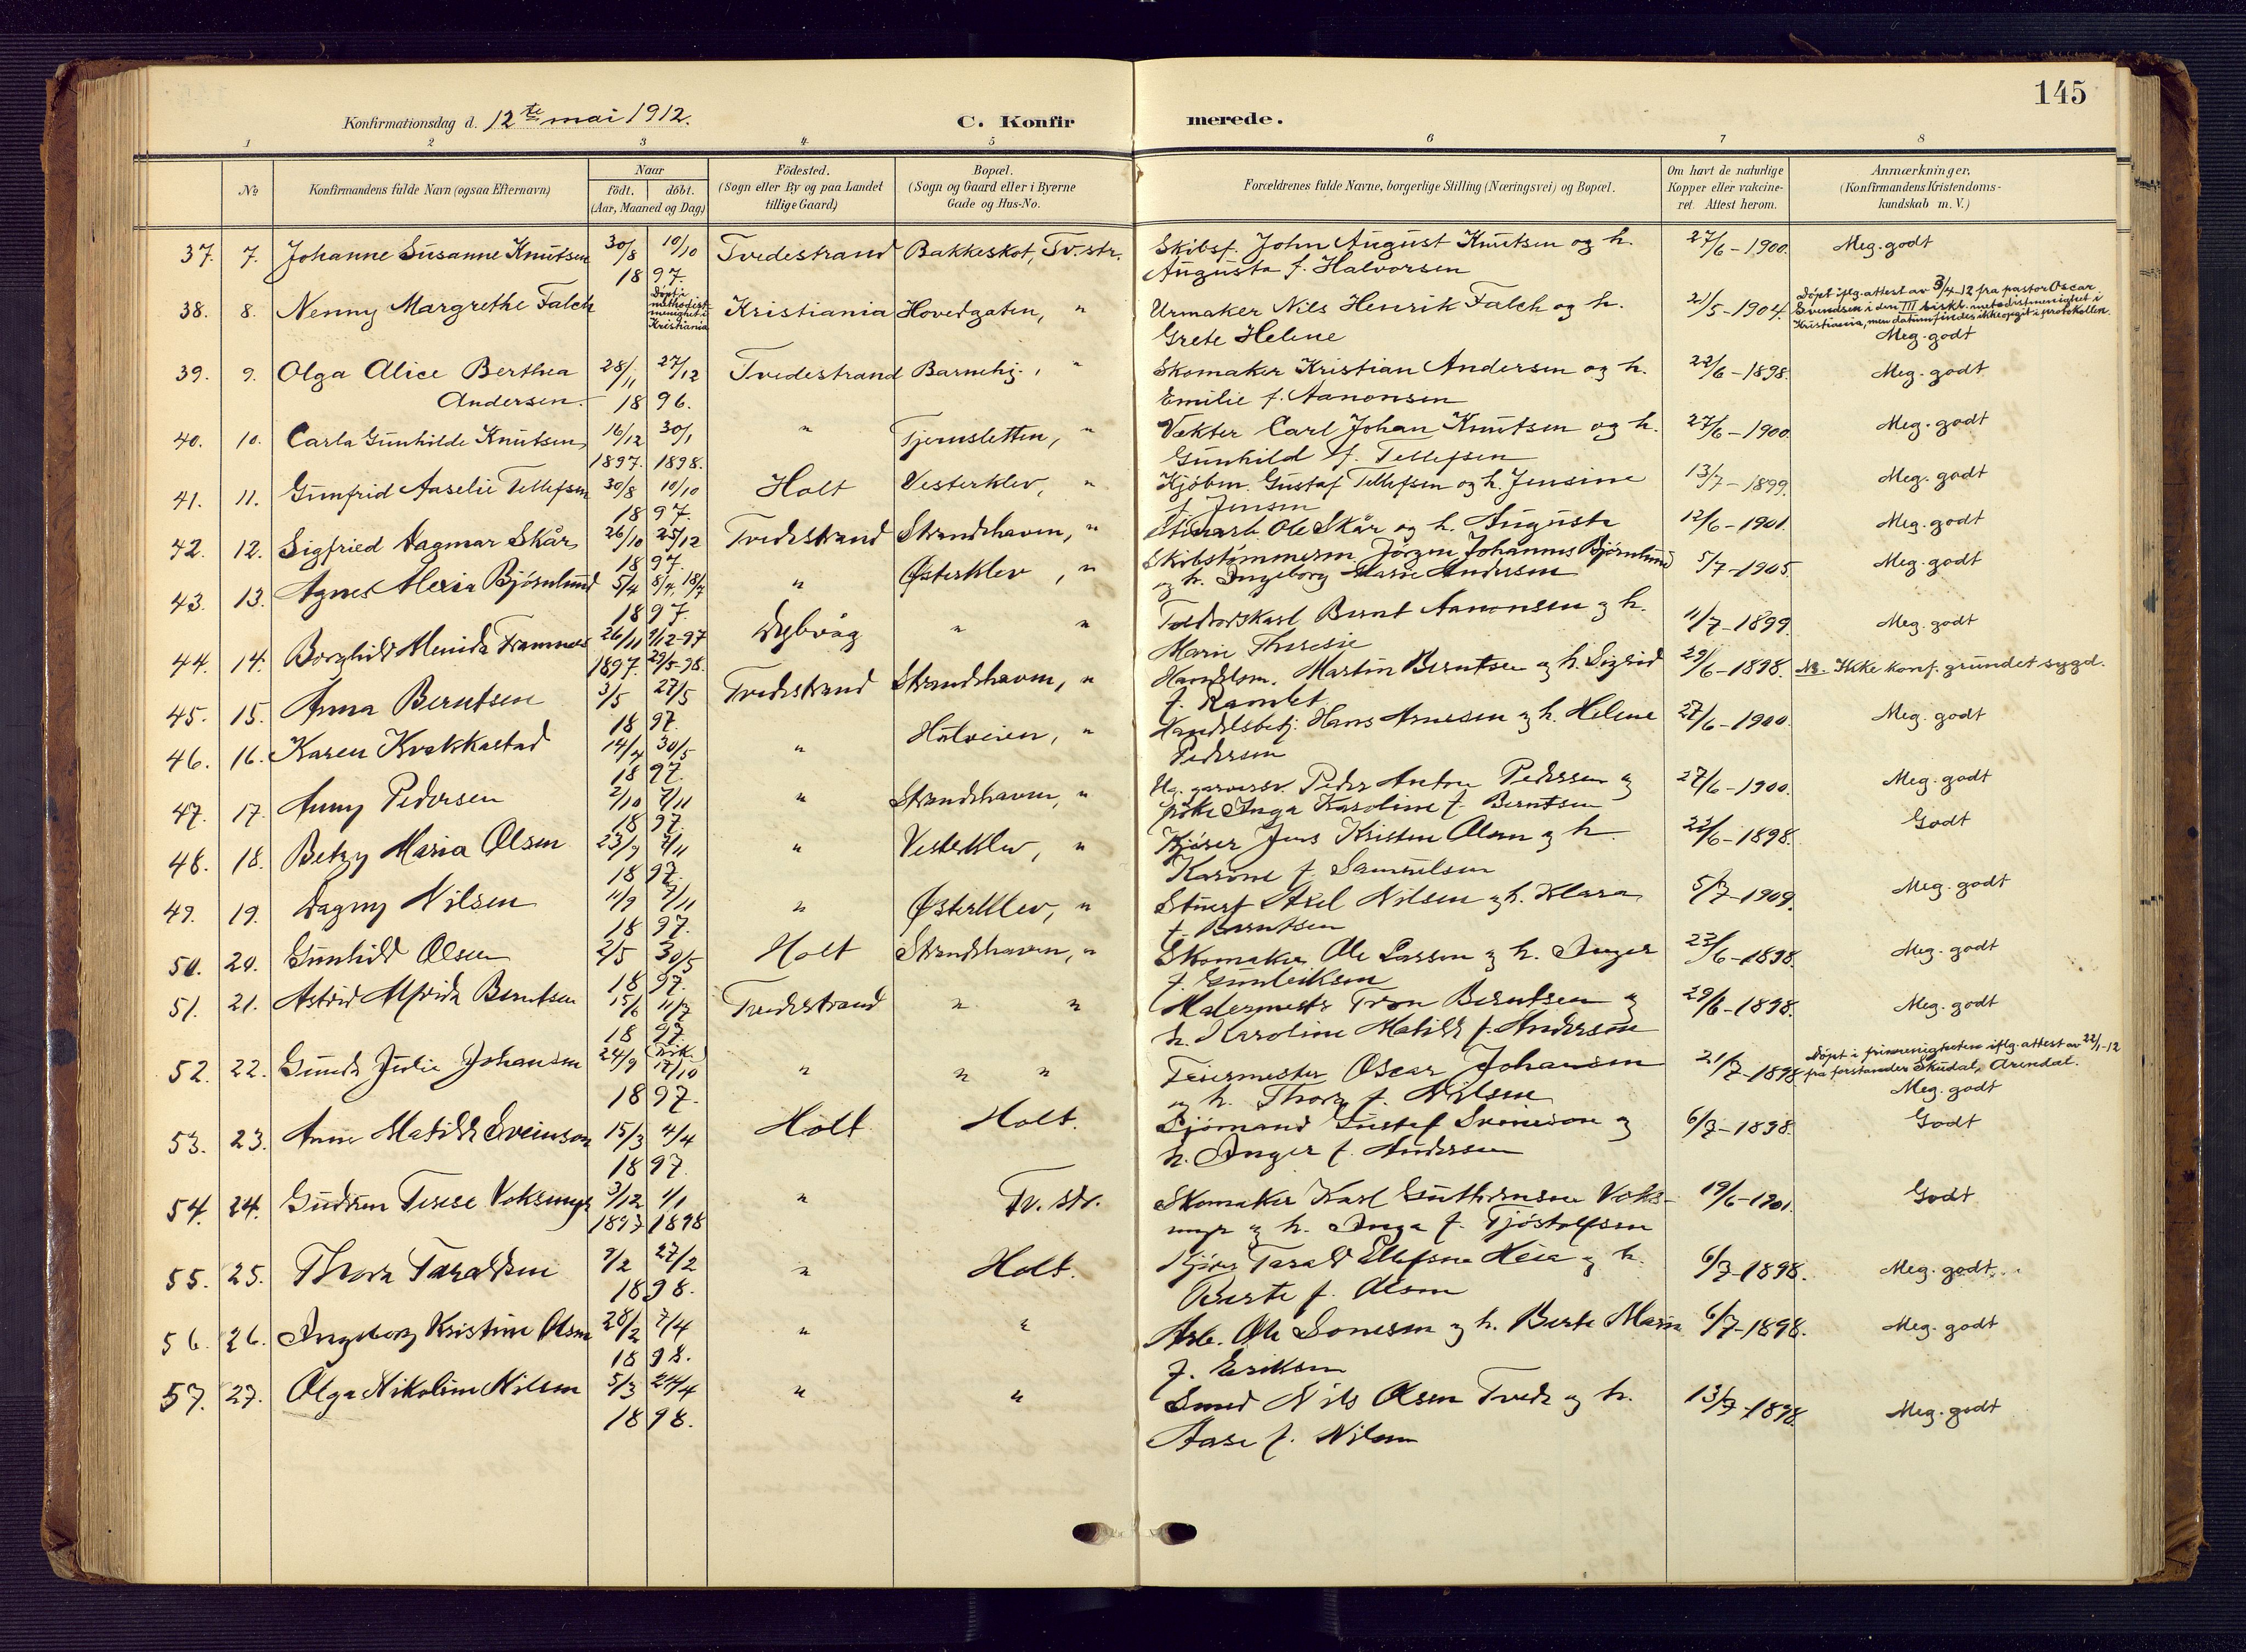 145
Konfirmationsdag d. 12te mai 1912.
C. Konfirmerede.
1 2 3 4 5 6 7 8
No
Konfirmandens fulde Navn (ogsaa Efternavn)
Naar
födt. döbt.
(Aar, Maaned og Dag)
Födested.
(Sogn eller By og paa Landet
tillige Gaard)
Bopæl.
(Sogn og Gaard eller i Byerne
Gade og Hus-No.
Forældrenes fulde Navne, borgerlige Stilling (Næringsvei) og Bopæl.
Om havt de naturlige
Kopper eller vakcine-
ret. Attest herom.
Anmærkninger.
(Konfirmandens Kristendoms-
kundskab m. V.)
37. 7. Johanne Susanne Knutsen 30/8 10/10 Tvedestrand Bakkeskot, Tv.str. Skibsf. John August Knutsen og h. 27/6-1900. Meg. godt
1897. Augusta f. Halvorsen
38. 8. Nenny Margrethe Falch Døpt i methodistmenighet i Kristiania Kristiania Hovedgaten, " Urmaker Nils Henrik Falch og h. 21/5-1904. Døpt iflg. attest av 3/4-12 fra pastor Oscar
Svendsen i den III biskl. metodistmenighet i
Kristiania, men datum findes ikke opgit i protokollen.
Grete Helene Meg. godt
39. 9. Olga Alice Berthea 28/11 27/12 Tvedestrand Barnehj., " Skomaker Kristian Andersen og h. 22/6-1898. Meg. godt
Andersen. 1896. Emilie f. Aanonsen
40. 10. Carla Gunhilde Knutsen 16/12 30/1 " Tjernsletten, " Vækter Carl Johan Knutsen og h. 27/6-1900. Meg. godt
1897. 1898. Gunhild f. Tellefsen
41. 11. Gunfrid Aaselie Tellefsen 30/8 10/10 Holt Vesterklev, " Kjøbm. Gustaf Tellefsen og h. Jensine 13/7-1899. Meg. godt
1897. f. Jensen
42. 12. Sigfried Dagmar Skår 26/10 25/12 Tvedestrand Strandhaven, " Ole Skår og h. Augusta 12/6-1901. Meg. godt
1897.
43. 13. Agnes Alexia Bjørnlund 5/4 8/4, 18/7 " Østerklev, " Skibstømmerm. Jørgen Johannes Bjørnlund 5/7-1905. Meg. godt
1897. og h. Ingeborg Marie Andersen
44. 14. Borghild Menida Framnes 26/11 9/12-97 Dybvåg " " Bernt Aanonsen og h. 11/7-1899. Meg. godt
1897. 29/5-98. Marie Theresie
45. 15. Anna Berntsen 3/5 27/5 Tvedestrand Strandhaven, " Handelsm. Martin Berntsen og h. Sigrid 29/6-1898. NB. Ikke konf. grundet sygd.
1897. f. Ramlet
46. 16. Karen Kvakkestad 14/4 30/5 " Holveien, " Handelsbetj. Hans Arnesen og h. Helene 27/6-1900. Meg. godt
1897. Pedersen
47. 17. Anny Pedersen 2/10 7/11 " Strandhaven, " Peder Anton Pedersen og 27/6-1900. Meg. godt
1897. Inga Karoline f. Berntsen
48. 18. Betzy Maria Olsen 23/9 7/11 " Vesterklev, " Kjører Jens Kristen Olsen og h. 22/6-1898. Godt
1897. Karine f. Samuelsen
49. 19. Dagny Nilsen 11/9 7/11 " Østerklev, " Stuert Axel Nilsen og h. Klara 5/7-1909. Meg. godt
1897. f. Berntsen
50. 20. Gunhild Olsen 2/5 30/5 Holt Strandhaven, " Skomaker Ole Larsson og h. Inger 23/6-1898. Meg. godt
1897. f. Gunleiksen
51. 21. Astrid Alfrida Berntsen 15/6 11/7 Tvedestrand " " Malermester Tron Berntsen og 29/6-1898. Meg. godt
1897. h. Karoline Matilde f. Andersen
52. 22. Gunda Julie Johansen 24/9 17/10 " " " Feiermester Oscar Johansen 21/7-1898 Døpt i frimenigheten iflg. attest av 22/1-12
fra forstander Skudal, Arendal.
1897. og h. Thora f. Nilsen Meg. godt
53. 23. Anne Matilde Sveinson 15/3 4/4 Holt Holt. Sjømand Gustaf Sveinson og 6/7-1898. Godt
1897. h. Inger f. Andersen
54. 24. Gudrun Terese Voksmyr 3/12 1/1 " Tv. str. Skomaker Karl Guttormsen Voks- 19/6-1901. Godt
1897 1898 myr og h. Inga f. Tjøstolfsen
55. 25. Thora Taraldsen 9/2 27/2 " Holt. Kjører Tarald Ellefsen Heia og h. 6/7-1898. Meg. godt
1898. Berte f. Olsen
56. 26. Ingeborg Kristine Olsen 28/2 7/4 " " Arb. Ole Sonesen og h. Berte Marie 6/7-1898. Meg. godt
1898. f. Eriksen
57. 27. Olga Nikoline Nilsen 5/3 24/4 " " Smed Nils Olsen Tvede og h. 13/7-1898. Meg. godt
1898. Aase f. Nilsen